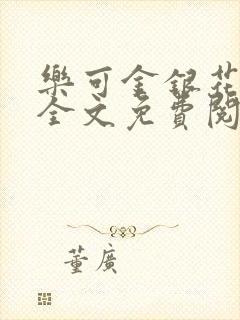 樂可金銀花
全文免費閱
董廣